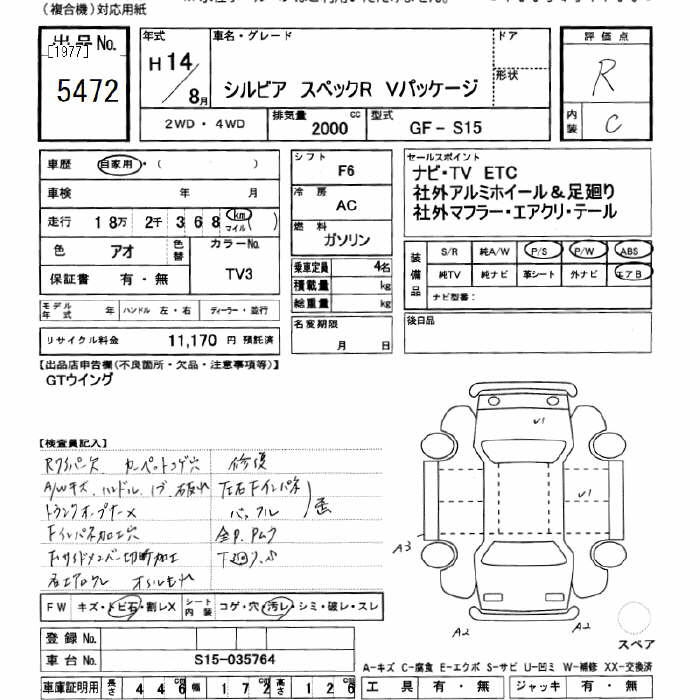 (複合機)対応用紙
出品No. 年式 車名・グレード ドア 評価点
[1977]
5472 H14/8月 シルビア スペックR Vパッケージ 形状 R
2WD・4WD 排気量 2000 cc 型式 GF-S15 内装 C
車歴 自家用・( ) シフト F6 セールスポイント
車検 年 月 冷房 AC ナビ・TV ETC
走行 18万 2千 368 km マイル ( ) 社外アルミホイール&足廻り
色 アオ 色替 カラーNo. 燃料 ガソリン 社外マフラー・エアクリ・テール
保証書 有・無 TV3 乗車定員 4名 装備品 S/R 純A/W P/S P/W ABS
積載量 kg 純TV 純ナビ 革シート 外ナビ エアB
モデル年式 年 ハンドル 左・右 ディーラー・並行 総重量 kg ナビ型番:
リサイクル料金 11,170 円 預託済 名変期限 月 日 後日品
【出品店申告欄(不良箇所・欠品・注意事項等)】
GTウイング
【検査員記入】
カーペットコゲ穴 修復
A/Wキズ、ハンドル
トランクオープナーX
Fインパネ加工穴
Fサイドメンバー切断加工
U1
U1
A3
A2 A2
スペア
FW キズ・トビ石・割レX シート内装 コゲ・穴・汚レ・シミ・破レ・スレ
登録No.
車台No. S15-035764
A-キズ C-腐食 E-エクボ S-サビ U-凹ミ W-補修 XX-交換済
車庫証明用 長さ 446 cm 幅 172 cm 高さ 126 cm 工具 有・無 ジャッキ 有・無